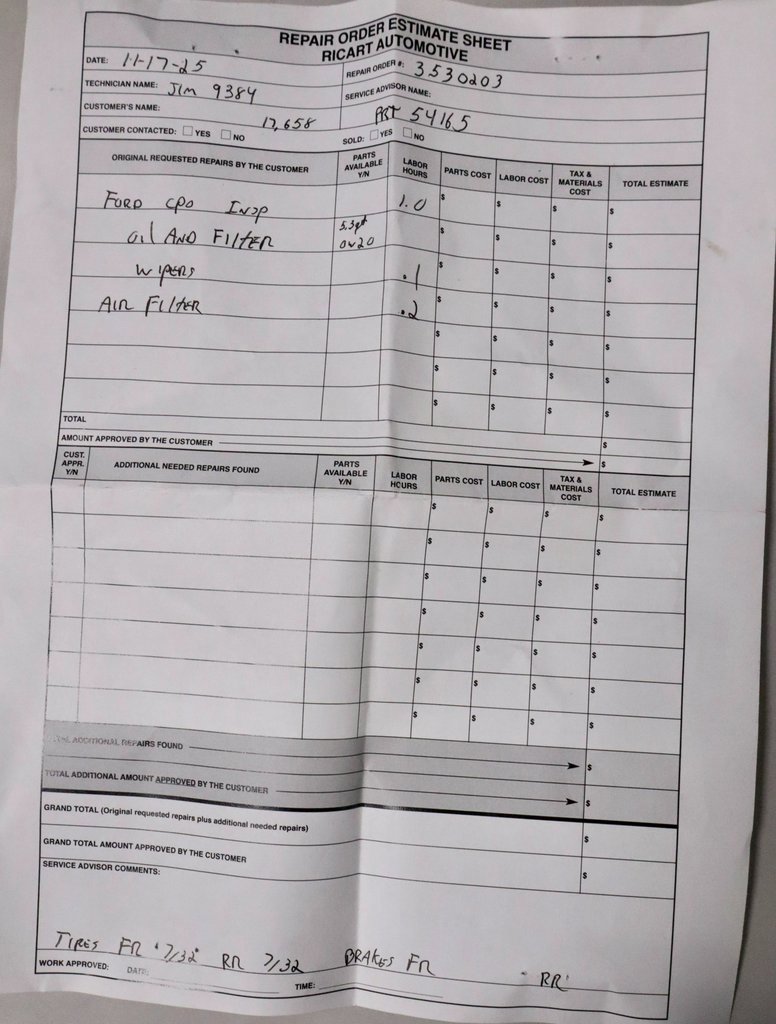 REPAIR ORDER ESTIMATE SHEET
RICART AUTOMOTIVE
DATE: 11-17-25 REPAIR ORDER #: 3530203
TECHNICIAN NAME: Jim 9384 SERVICE ADVISOR NAME:
CUSTOMER'S NAME: 17,658 PRT 54165
CUSTOMER CONTACTED: ☐ YES ☐ NO SOLD: ☐ YES ☐ NO
ORIGINAL REQUESTED REPAIRS BY THE CUSTOMER PARTS AVAILABLE Y/N LABOR HOURS PARTS COST LABOR COST TAX & MATERIALS COST TOTAL ESTIMATE
FORD CPO INSP 1.0 $ $ $ $
OIL AND FILTER 5.3qt 0w20 $ $ $ $
WIPERS .1 $ $ $ $
AIR FILTER .2 $ $ $ $
$ $ $ $
$ $ $ $
$ $ $ $
TOTAL $
AMOUNT APPROVED BY THE CUSTOMER $
CUST. APPR. Y/N ADDITIONAL NEEDED REPAIRS FOUND PARTS AVAILABLE Y/N LABOR HOURS PARTS COST LABOR COST TAX & MATERIALS COST TOTAL ESTIMATE
$ $ $ $
$ $ $ $
$ $ $ $
$ $ $ $
$ $ $ $
$ $ $ $
$ $ $ $
ADDITIONAL REPAIRS FOUND $
TOTAL ADDITIONAL AMOUNT APPROVED BY THE CUSTOMER $
GRAND TOTAL (Original requested repairs plus additional needed repairs) $
GRAND TOTAL AMOUNT APPROVED BY THE CUSTOMER $
SERVICE ADVISOR COMMENTS:
TIRES FR 7/32 RR 7/32 BRAKES FR RR
WORK APPROVED: DATE: TIME: